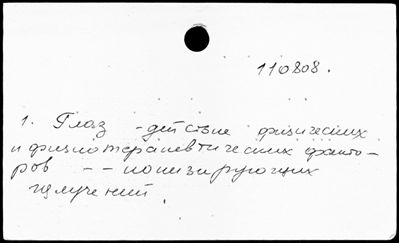 110808.
1. Глаз - действие физических
и физиотерапевтических факто-
ров - - ионизирующих
излучений.